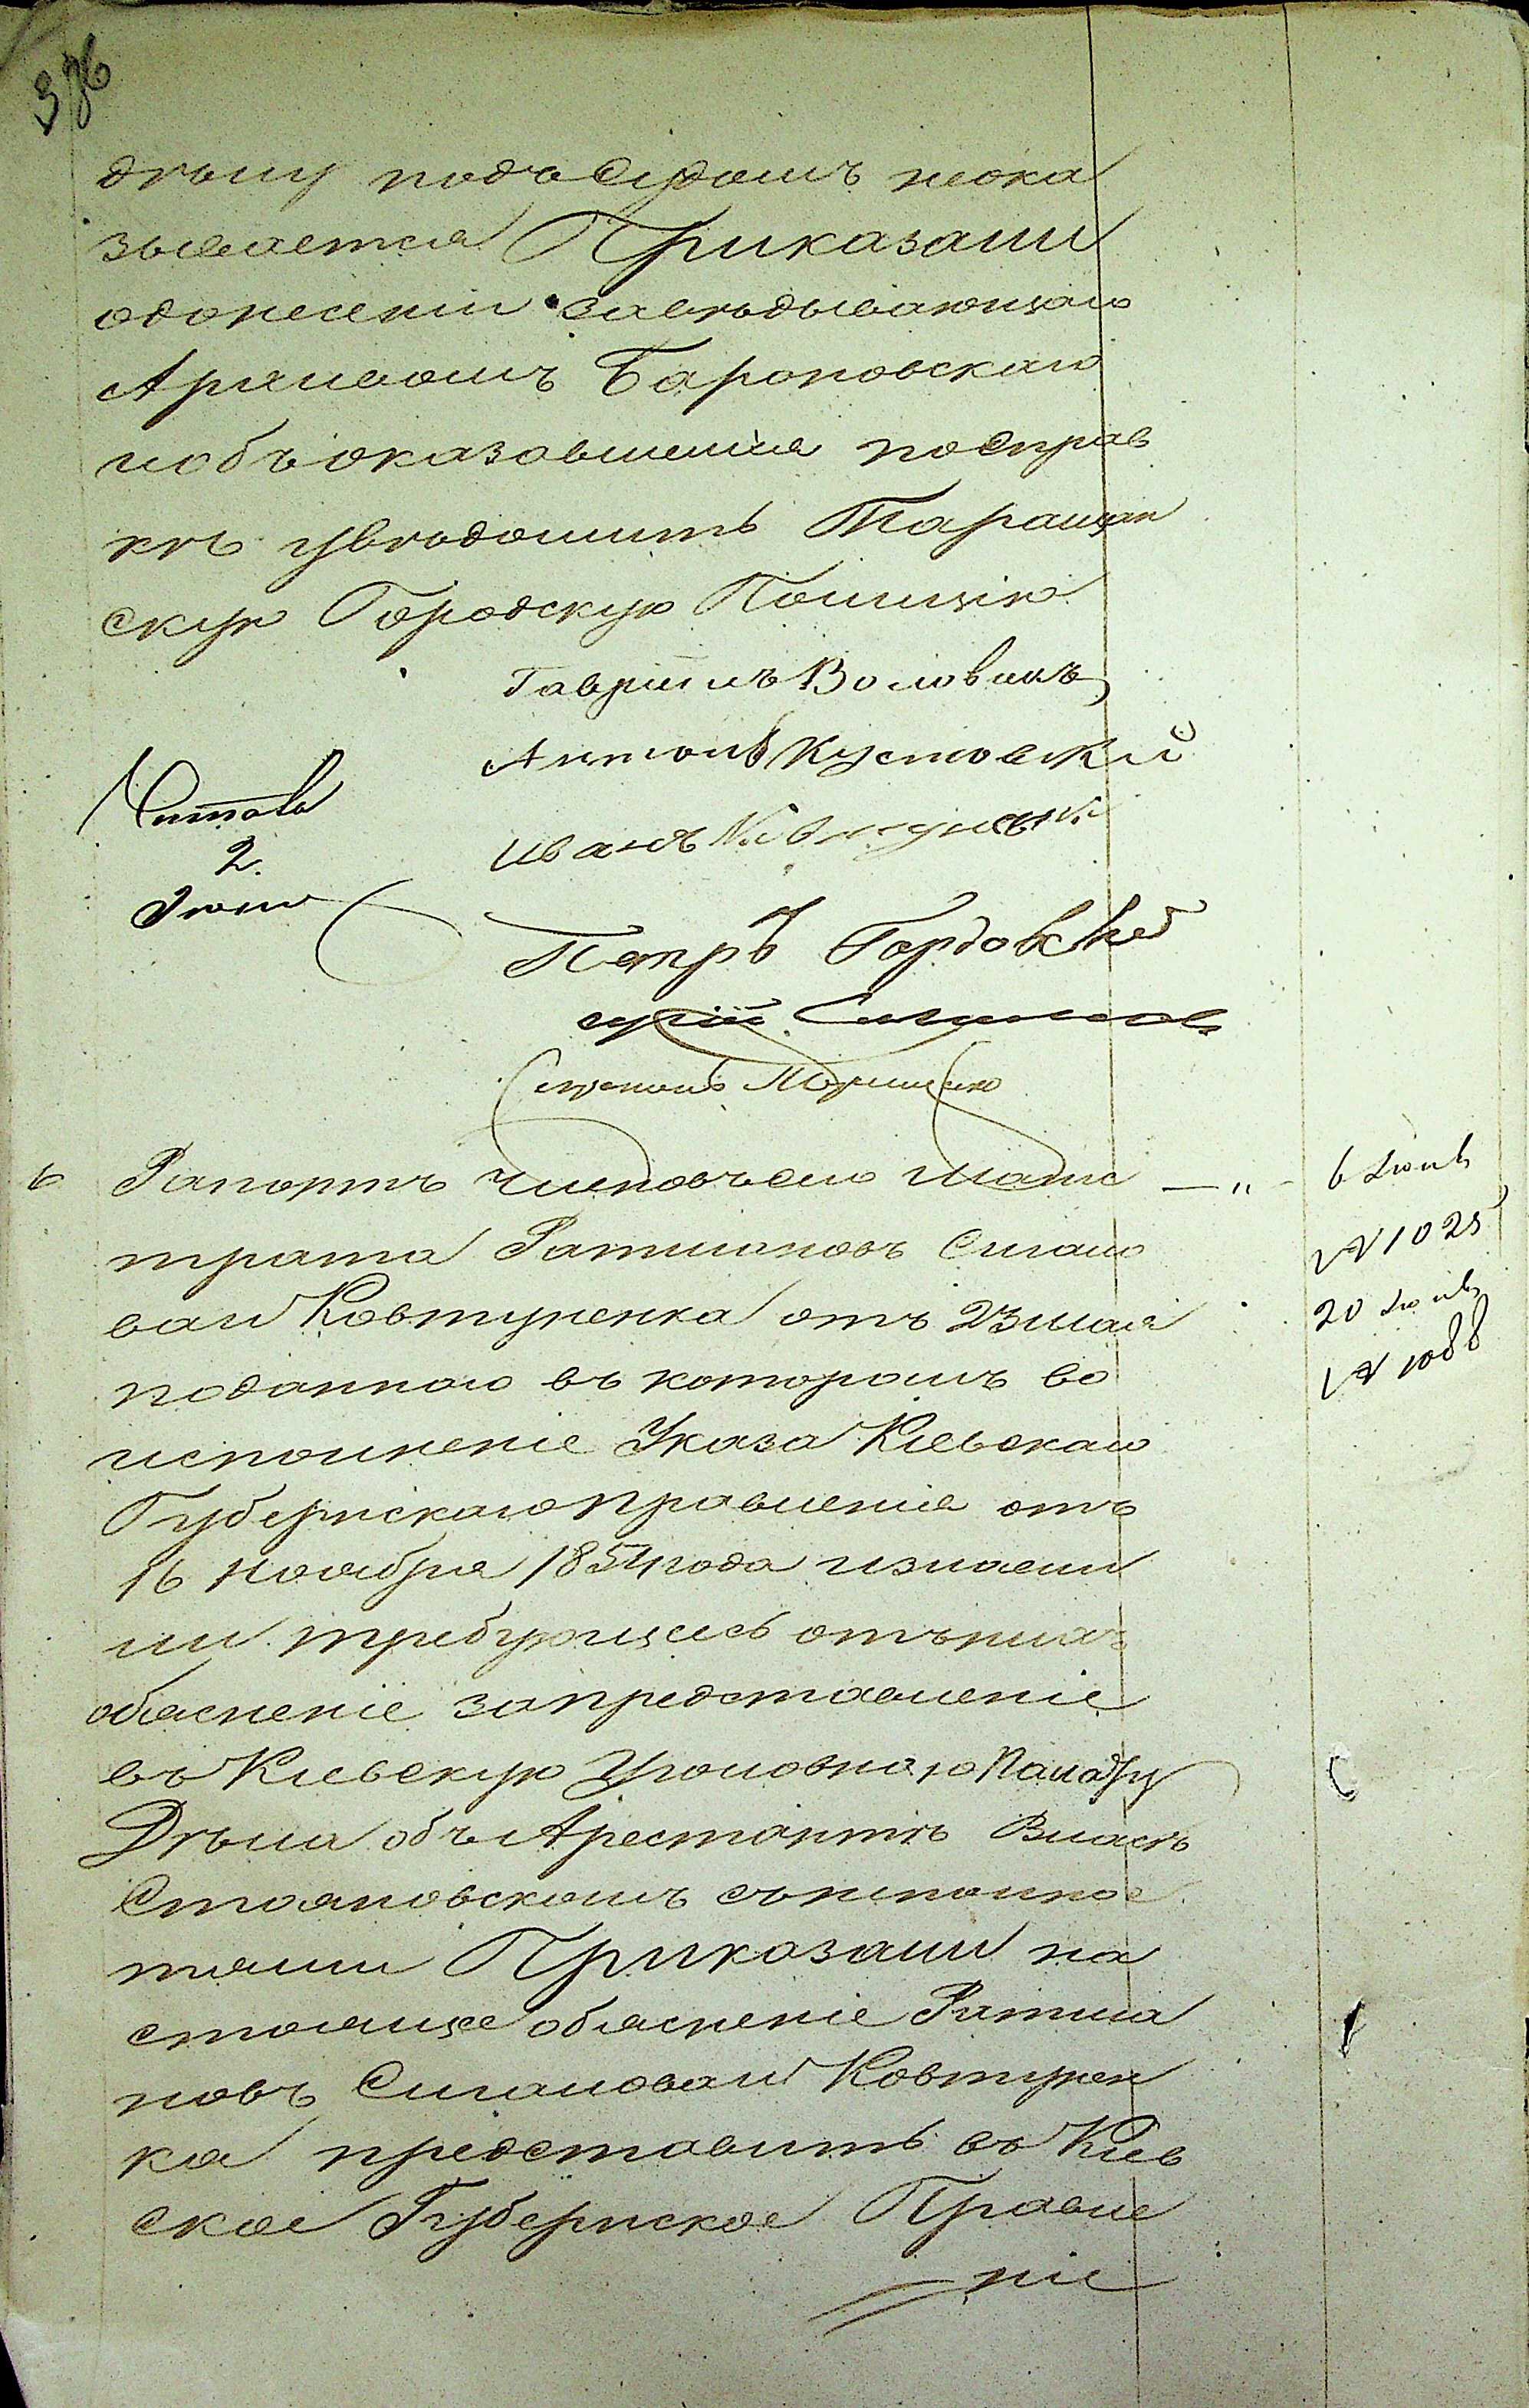 376
дѣлу подъ Судомъ неока
зывается Приказали
одонесеніи завѣдывающаго
Архивомъ Бароповскаго
иобъоказавшемся посправ
кѣ увѣдомить Таращан
скую Городскую Полицію
Гавріилъ Воловикъ
Антонъ Кустовскій
Иванъ
Читалъ
2.
Іюня
Петръ Гордовскій
6 Рапортъ Членовъ сего Магис
трата Ратмановъ Сигало
ваи Ковтуненка отъ 23 мая
поданного въ которомъ во
исполненіе Указа Кіевскаго
Губернскаго Правленія отъ
16 Ноября 1854 года изъясни
ли требующеесь отънихъ
объясненіе запредставленіе
въ Кіевскую Уголовную Палату
Дѣла объ Арестантѣ Власѣ
Стояновскомъ съ неполно
тами Приказали на
стоящее объясненіе Ратма
новъ Сигаловаи Ковтунен
ка представить въ Кіев
ское Губернское Правле
ніе
6 Іюня
№ 1025
20 Іюня
№ 1088